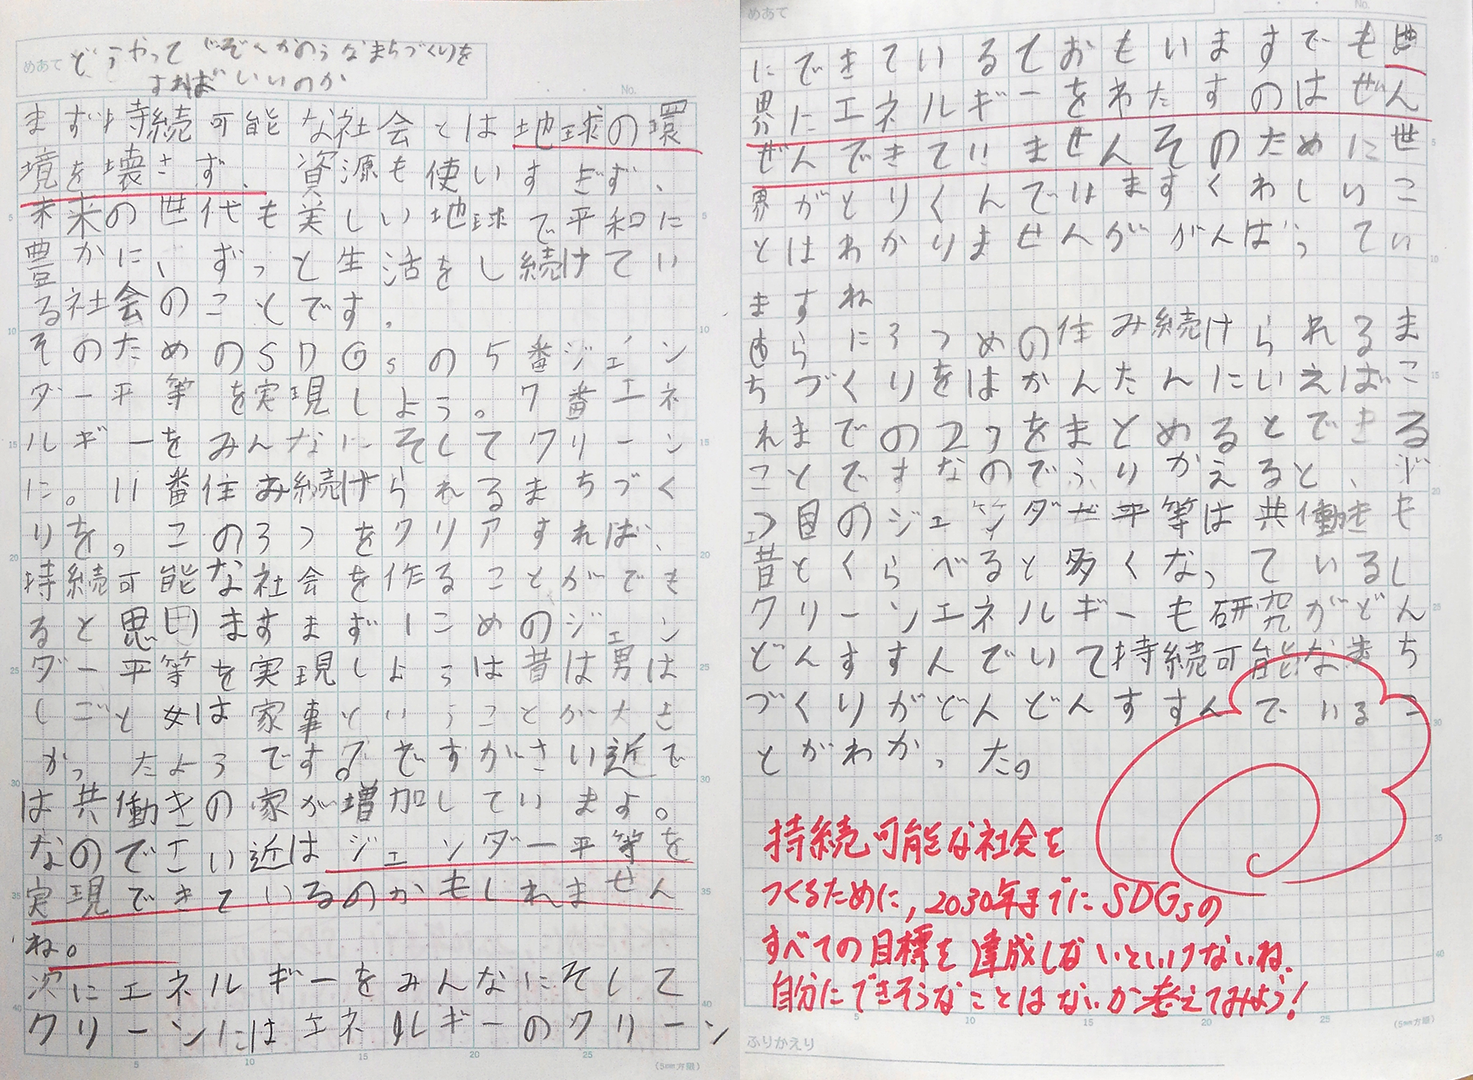 めあて どうやってじぞくかのうなまちづくりを
すればいいのか
No.
まず持続可能な社会とは地球の環
境を壊さず、資源も使いすぎず、
未来の世代も美しい地球で平和に
豊かに、ずっと生活をし続けてい
る社会のことです。
そのためのSDGsの5番ジェン
ダー平等を実現しよう。7番エネ
ルギーをみんなにそしてクリーン
に。11番住み続けられるまちづく
りを。この3つをクリアすれば、
持続可能な社会を作ることができ
ると思いますまず1こめのジェン
ダー平等を実現しようは昔は男は
しごと女は家事ということが大き
かったようです。ですがさい近で
は共働きの家が増加しています。
なのでさい近はジェンダー平等を
実現できているのかもしれません
ね。
次にエネルギーをみんなにそして
クリーンにはエネルギーのクリーン
(5mm方眼)
めあて
No.
にできているておもいますでも世
界にエネルギーをわたすのはぜん
ぜんできていませんそのために世
界がとりくんではますくわしいこ
とはわかりませんががんばってい
ますね
さらに3つめの住み続けられるま
ちづくりをはかんたんにいえばこ
れまでの2つをまとめるとできる
ことですなのでふりかえると、
1つ目のジェンダー平等は共働きも
昔とくらべると多くなっているし
クリーンエネルギーも研究がどん
どんすすんでいて持続可能なまち
づくりがどんどんすすんでいるこ
とがわかった。
持続可能な社会を
つくるために、2030年までにSDGsの
すべての目標を達成しないといけないね。
自分にできそうなことはないか考えてみよう!
(5mm方眼)
ふりかえり